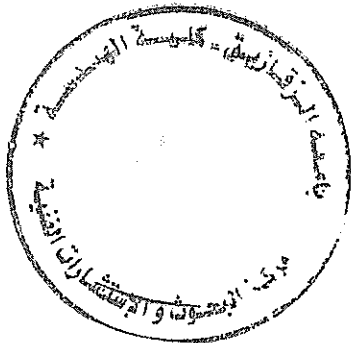 جامعة الزقازيق - كلية الهندسة
مركز البحوث و الاستشارات الفنية